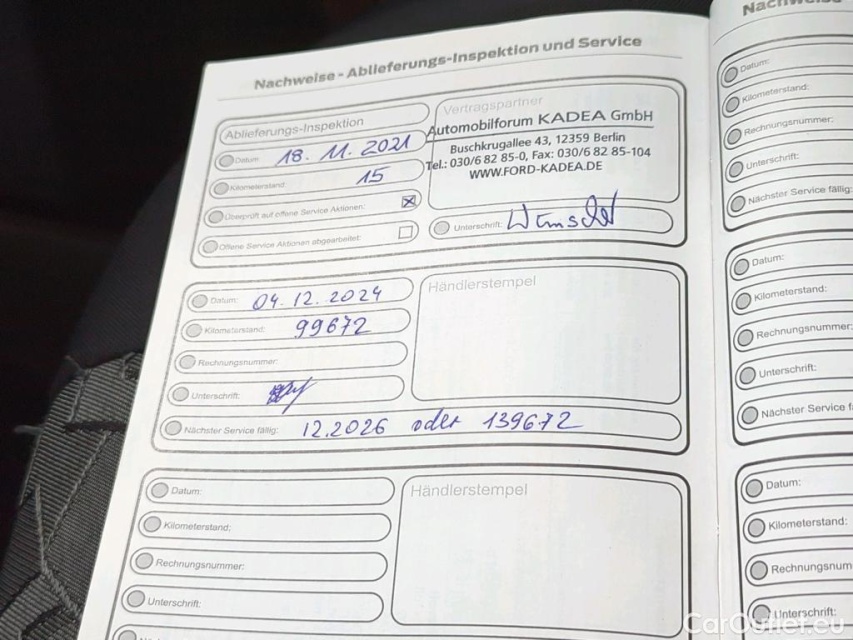 Nachweise - Ablieferungs-Inspektion und Service
Ablieferungs-Inspektion
Datum: 18. 11. 2021
Kilometerstand: 15
Überprüft auf offene Service Aktionen: ☒
Offene Service Aktionen abgearbeitet: ☐
Vertragspartner
Automobilforum KADEA GmbH
Buschkrugallee 43, 12359 Berlin
Tel.: 030/6 82 85-0, Fax: 030/6 82 85-104
WWW.FORD-KADEA.DE
Unterschrift:
Datum: 04. 12. 2024
Kilometerstand: 99672
Rechnungsnummer:
Unterschrift:
Nächster Service fällig: 12.2026 oder 139672
Händlerstempel
Datum:
Kilometerstand:
Rechnungsnummer:
Unterschrift:
Händlerstempel
Nachweise
Datum:
Kilometerstand:
Rechnungsnummer:
Unterschrift:
Nächster Service fällig:
Datum:
Kilometerstand:
Rechnungsnummer:
Unterschrift:
Nächster Service f
Datum:
Kilometerstand:
Rechnungsnum
Unterschrift:
CarOutlet.eu